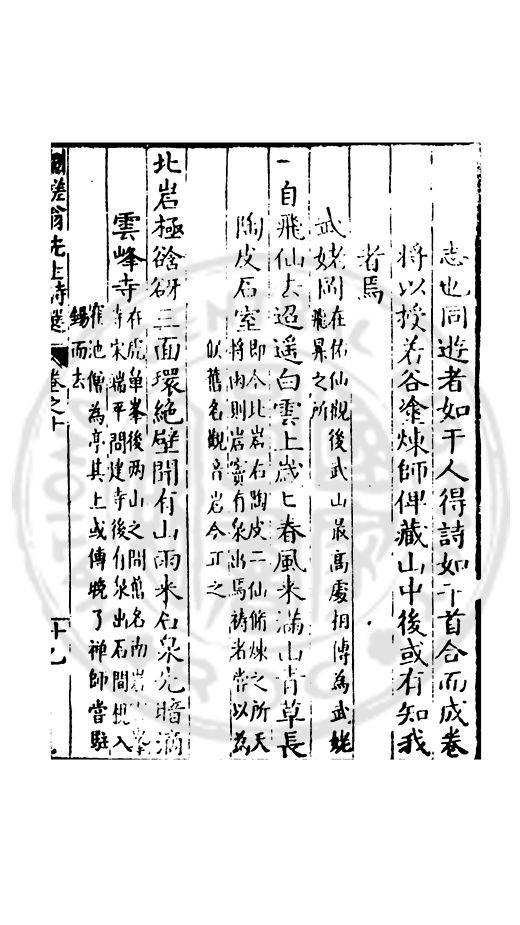 志也同遊者如干人得詩如干首合而成卷
將以授若谷涂煉師俾藏山中後或有知我
者焉
武姥岡在佑仙觀後武山最高處相傳為武姥
飛昇之所
一自飛仙去迢遥白雲上歲歲春風來滿山青草長
陶皮石室即今北岩右陶皮二仙脩煉之所天
將雨則岩竇有泉出焉禱者嘗以為
以舊名觀音岩今正之
北岩極谽谺三面環絶壁開有山雨來石泉先暗滴
雲峰寺在虎鼻峯後两山之間舊名南岩
寺宋端平間建寺後有泉出石間想入
雀池僧為亭其上或傳晚了禅師當駐
錫而去
先生詩選 卷之十 十九